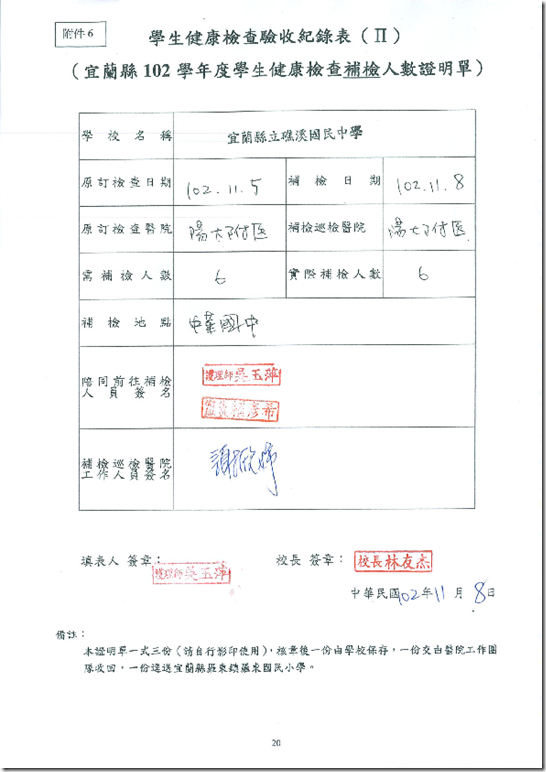 附件 6
學生健康檢查驗收紀錄表（Ⅱ）
（宜蘭縣 102 學年度學生健康檢查補檢人數證明單）
學校名稱 宜蘭縣立礁溪國民中學
原訂檢查日期 102.11.5 補檢日期 102.11.8
原訂檢查醫院 陽大附醫 補檢巡檢醫院 陽大附醫
需補檢人數 6 實際補檢人數 6
補檢地點 中華國中
陪同前往補檢
人員簽名
護理師吳玉萍
補檢巡檢醫院
工作人員簽名
填表人 簽章： 護理師吳玉萍 校長 簽章： 校長林友杰
中華民國102年11月8日
備註：
本證明單一式三份（請自行影印使用），核章後一份由學校保存，一份交由醫院工作團
隊收回，一份逕送宜蘭縣羅東鎮羅東國民小學。
20